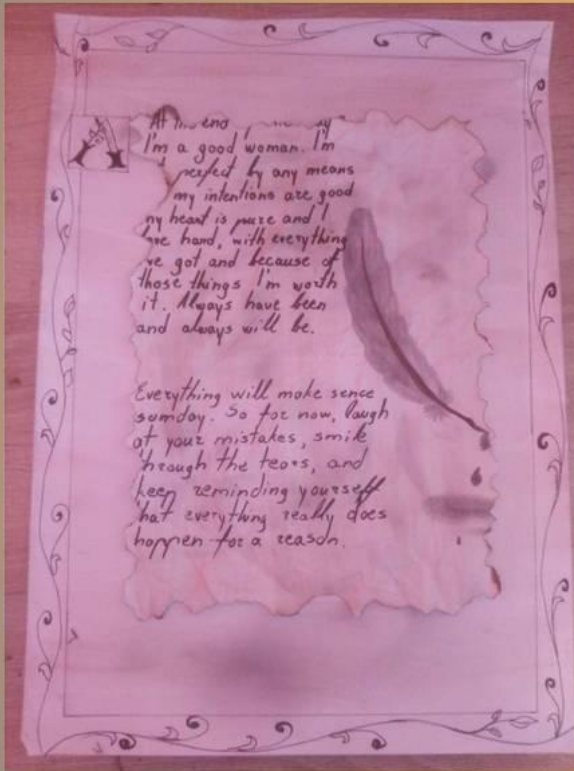 At the end
I'm a good woman. I'm
perfect by any means
my intentions are good
my heart is pure and I
hard, with everything
've got and because of
those things I'm worth
it. Always have been
and always will be.
Everything will make sence
sumday. So for now, laugh
at your mistakes, smile
through the tears, and
keep reminding yourself
that everything really does
happen for a reason.